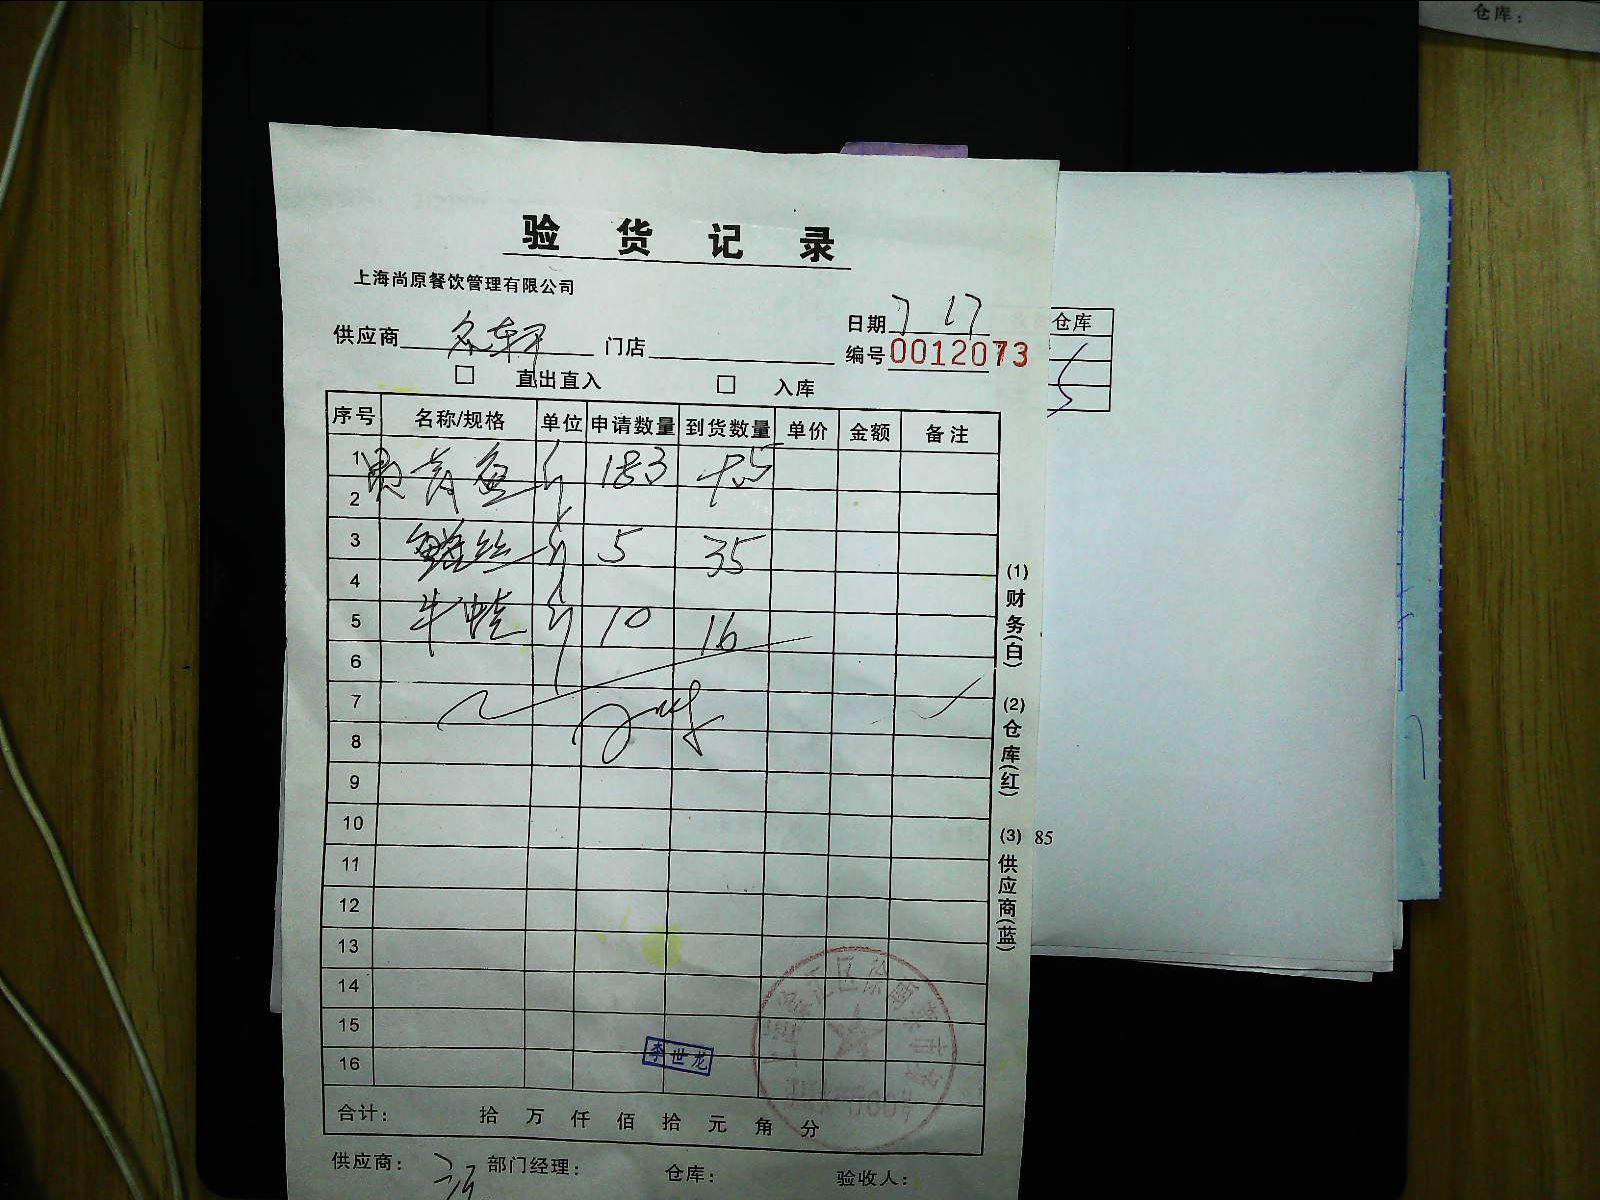 仓库：
验货记录
上海尚原餐饮管理有限公司
日期 7 17
供应商 众轩 门店
编号 0012073
□ 直出直入 □ 入库
仓库
序号 名称/规格 单位 申请数量 到货数量 单价 金额 备注
1 青鱼 斤 183
2
3 鳝丝 斤 5 35
4
5 牛蛙 斤 10 16
6
7
8
9
10
11
12
13
14
15
16
李世龙
合计： 拾 万 仟 佰 拾 元 角 分
供应商： 部门经理： 仓库： 验收人：
(1)财务(白) (2)仓库(红) (3)供应商(蓝)
85